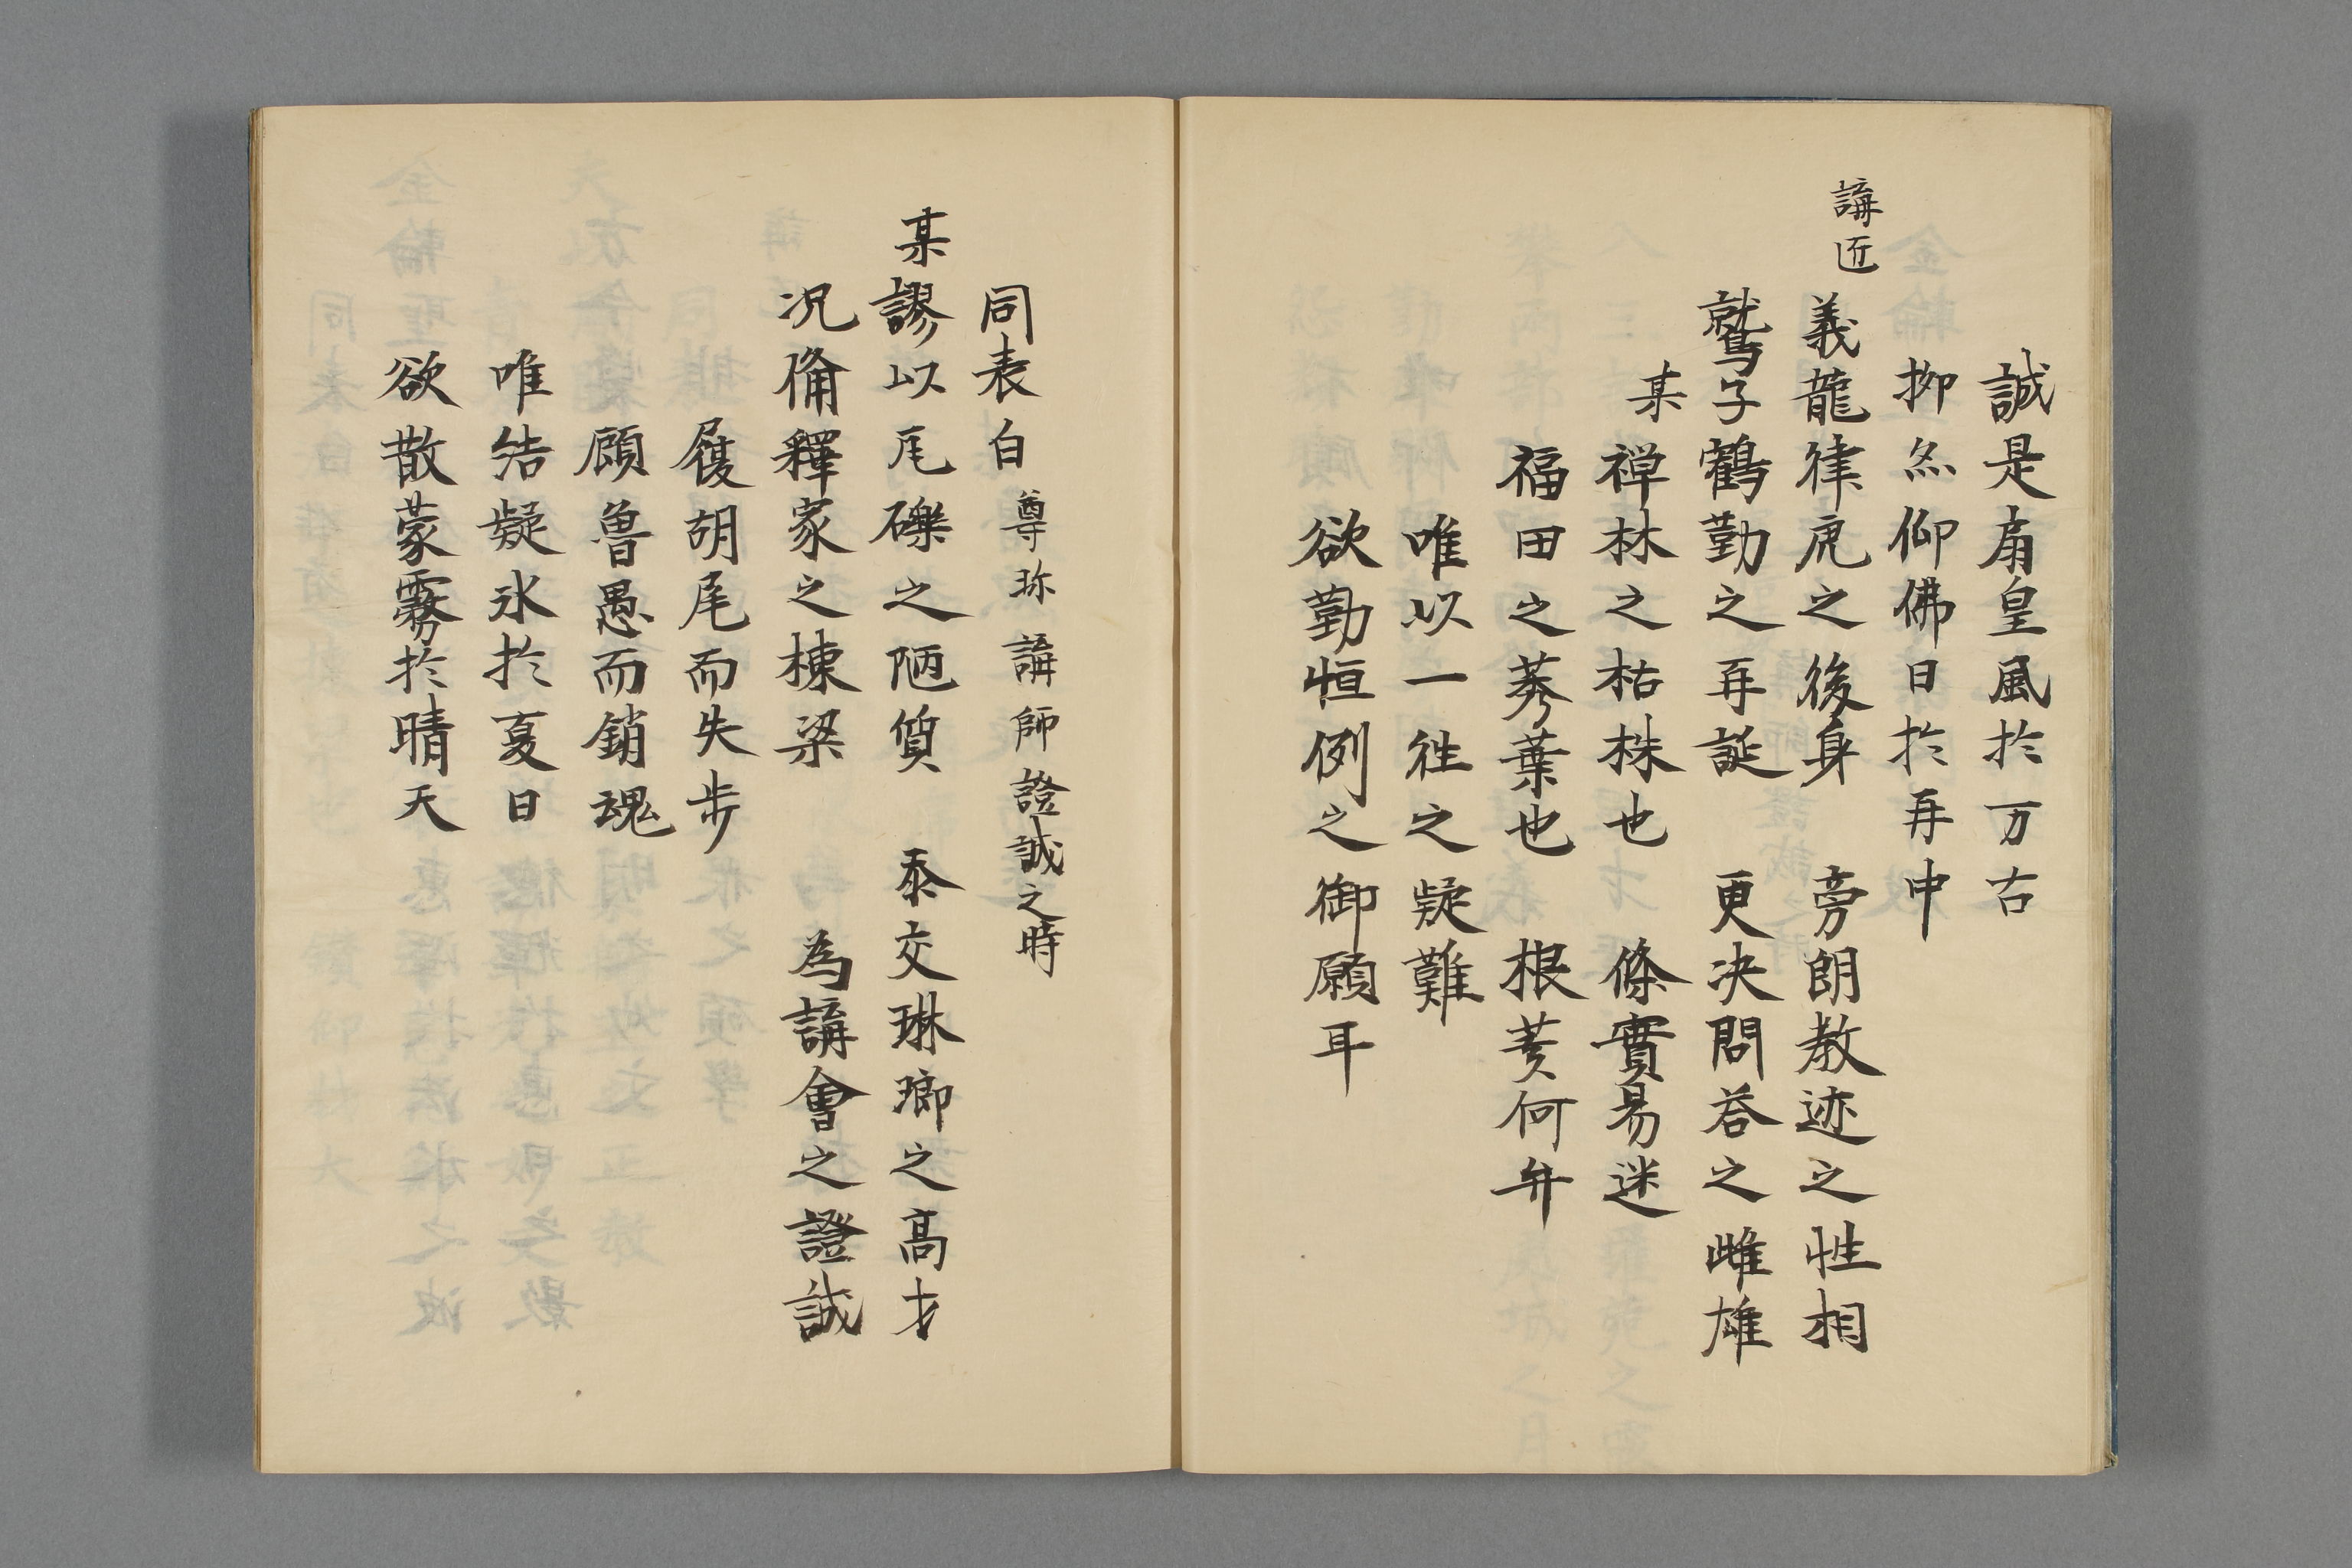 誠是扇皇風於万古
抑然仰佛日於再中
講匠
義龍律虎之後身　旁朗教迹之性相
鷲子鶴勤之再誕　更决問荅之雌雄
某
禅林之枯株也　條實易迷
福田之莠葉也　根荄何弁
唯以一往之疑難
欲勤恒例之御願耳
同表白 尊珎講師證誠之時
某謬以瓦礫之陋質　忝交琳瑯之高才
况備釋家之棟梁　為講會之證誠
履胡尾而失步
顧魯愚而銷魂
唯結疑氷於夏日
欲散蒙霧於晴天